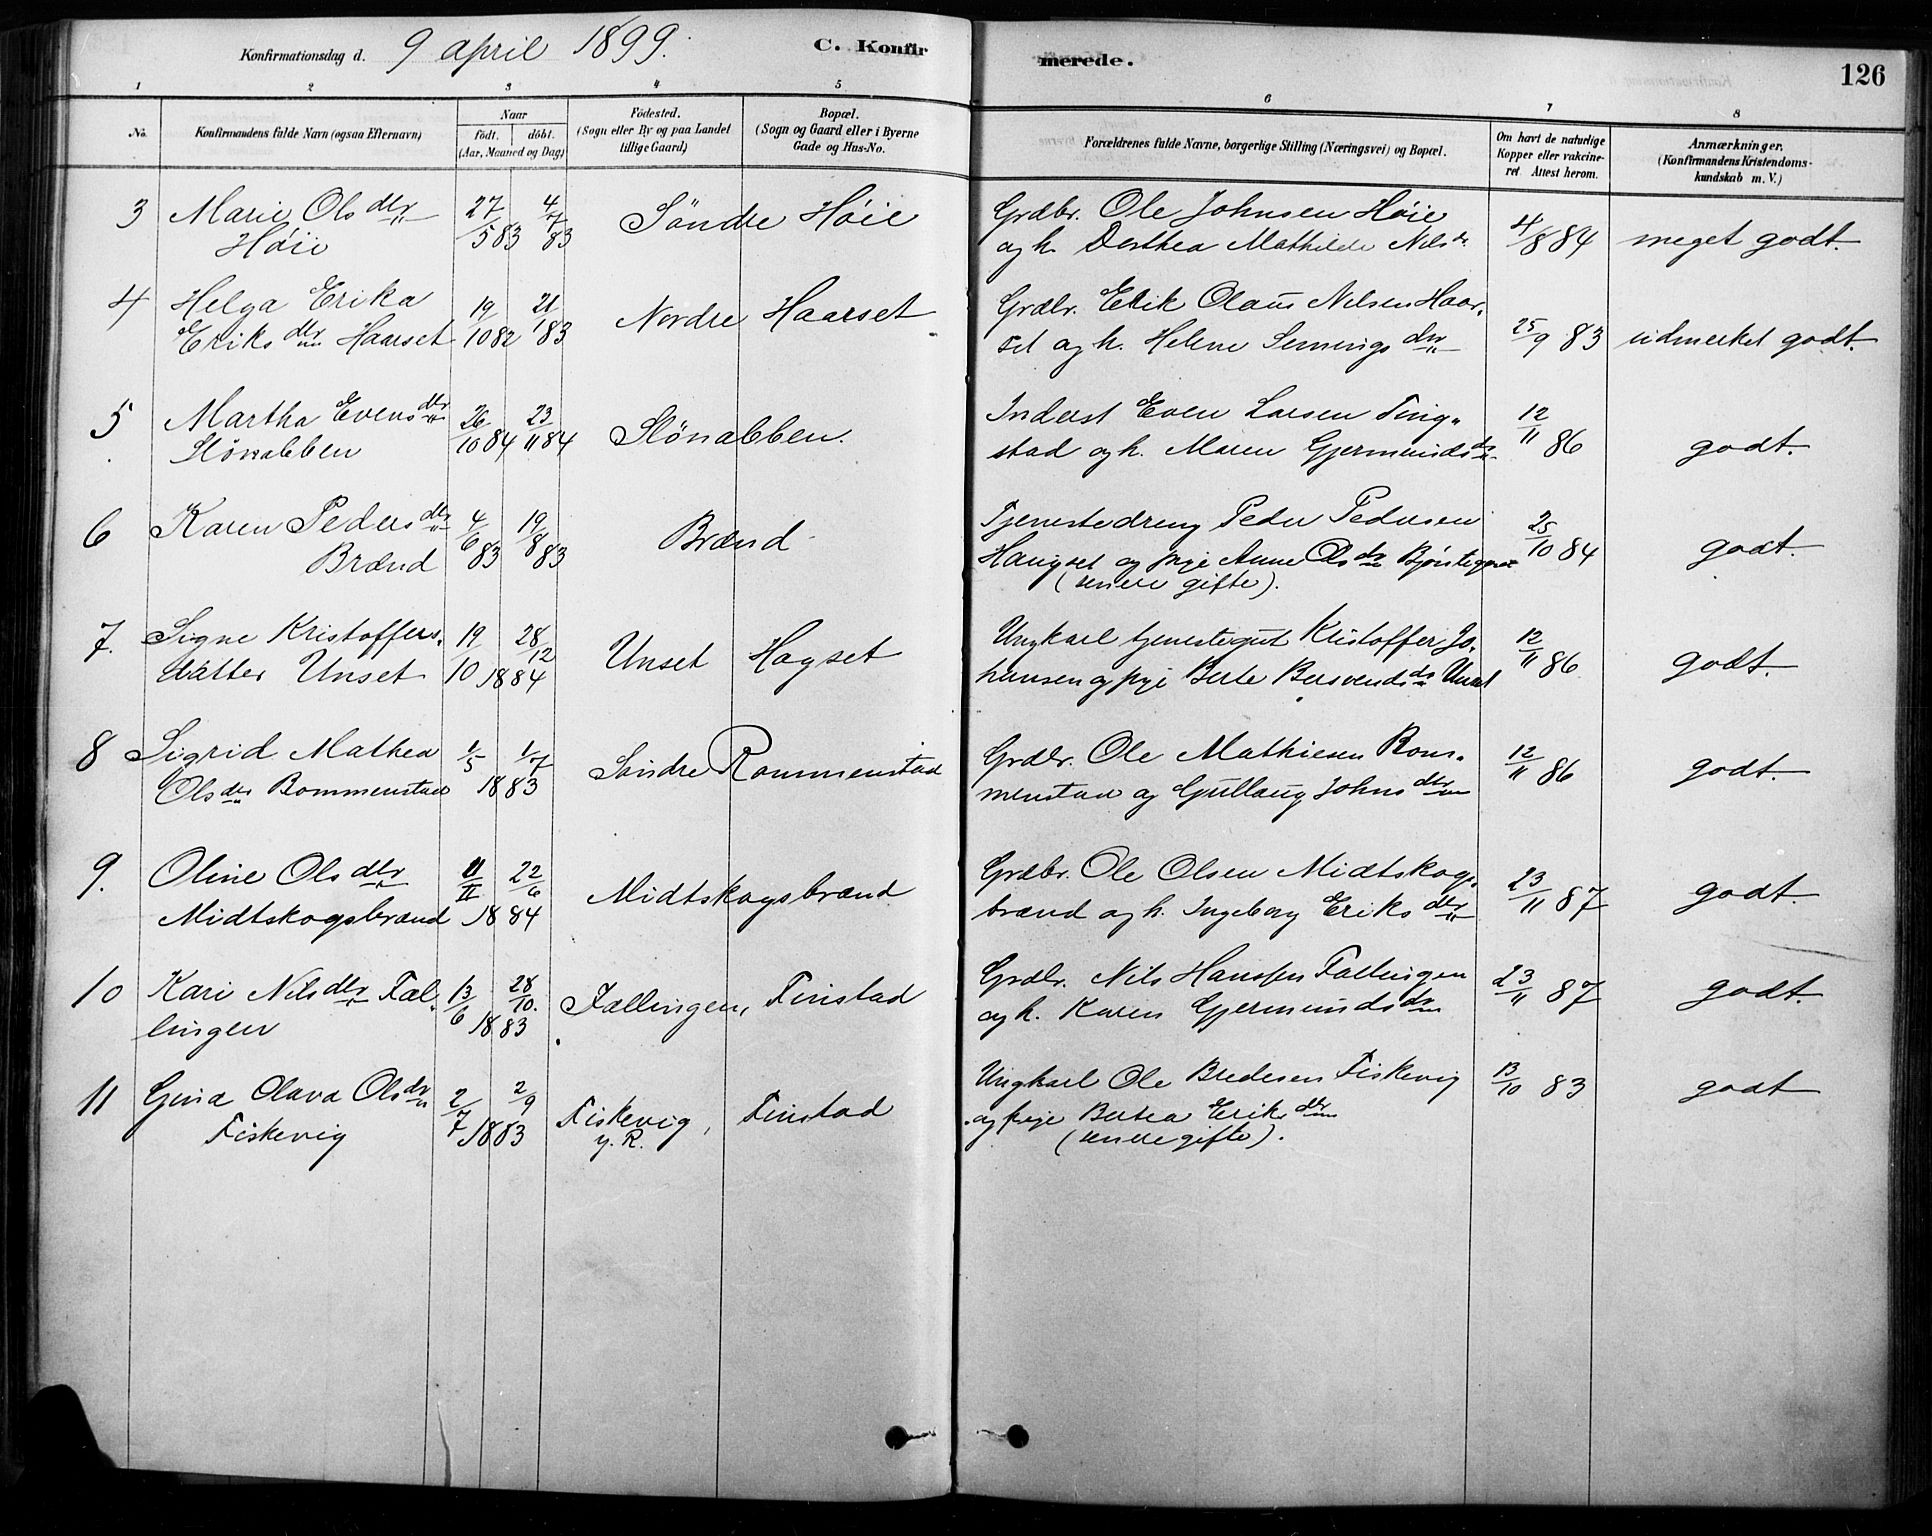 Konfirmationsdag d. 9 april 1899.
C. Konfir
merede.
126
1 2 3 4 5 6 7 8
No.
Konfirmandens fulde Navn (ogsaa Efternavn)
Naar
födt. döbt.
(Aar, Maaned og Dag)
Födested.
(Sogn eller By og paa Landet
tillige Gaard)
Bopæl.
(Sogn og Gaard eller i Byerne
Gade og Hus-No.
Forældrenes fulde Navne, borgerlige Stilling (Næringsvei) og Bopæl.
Om havt de naturlige
Kopper eller vakcine-
ret. Attest herom.
Anmærkninger.
(Konfirmandens Kristendoms-
kundskab m. V.)
3 Marie Olsdtr 27/5 83 4/7 83 Söndre Høie Grdbr. Ole Johnsen Høie 4/8 84 meget godt.
Høie og h. Dorthea Mathilde Nilsdr
4 Helga Erika 19/10 82 21/1 83 Nordre Haarset Grdbr. Erik Olaus Nilsen Haar-
Eriksdtr Haarset set og h. Helene Semmingsdtr 25/9 83 udmerket godt.
5 Martha Evensdtr 26/10 84 23/11 84 Slönabben. Inderst Even Larsen Ting-
Slönabben stad og h. Maren Gjermundsdr 12/11 86 godt.
6 Karen Pedersdtr 4/6 83 19/8 83 Brænd Tjenestedreng Peder Pedersen 25/10 84 godt.
Brænd Haugset og pige Anne Olsdr
(senere gifte).
7. Signe Kristoffers- 19/10 28/12 1884 Unset Hagset Ungkarl tjenestegut Kristoffer Jo- 12/11 86 godt.
datter Unset hansen og pige Berte Bersvendsdr Unset
8 Sigrid Mathea 1/5 1/7 Søndre Rommenstad Grdbr. Ole Mathiesen Rom- 12/11 86 godt.
Olsdtr Rommenstad 1883 menstad og Gullaug Johnsdtr
9. Oline Olsdtr 11/II 22/6 Midtskogsbrænd Grdbr. Ole Olsen Midtskogs- 23/11 87 godt.
Midtskogsbrænd 1884 brænd og h. Ingeborg Eriksdtr
10 Kari Nilsdtr Fal- 13/6 28/10. 1883 Fallingen, Finstad Grdbr. Nils Hansen Fallingen 23/11 87 godt.
lingen og h. Karen Gjermundsdtr
11 Gina Olava Olsdtr 2/7 2/9 1883 Fiskevig, Finstad Ungkarl Ole Bredesen Fiskevig 13/10 83 godt
Fiskevig y. R. og pige Bertea Eriksdtr
(senere gifte).